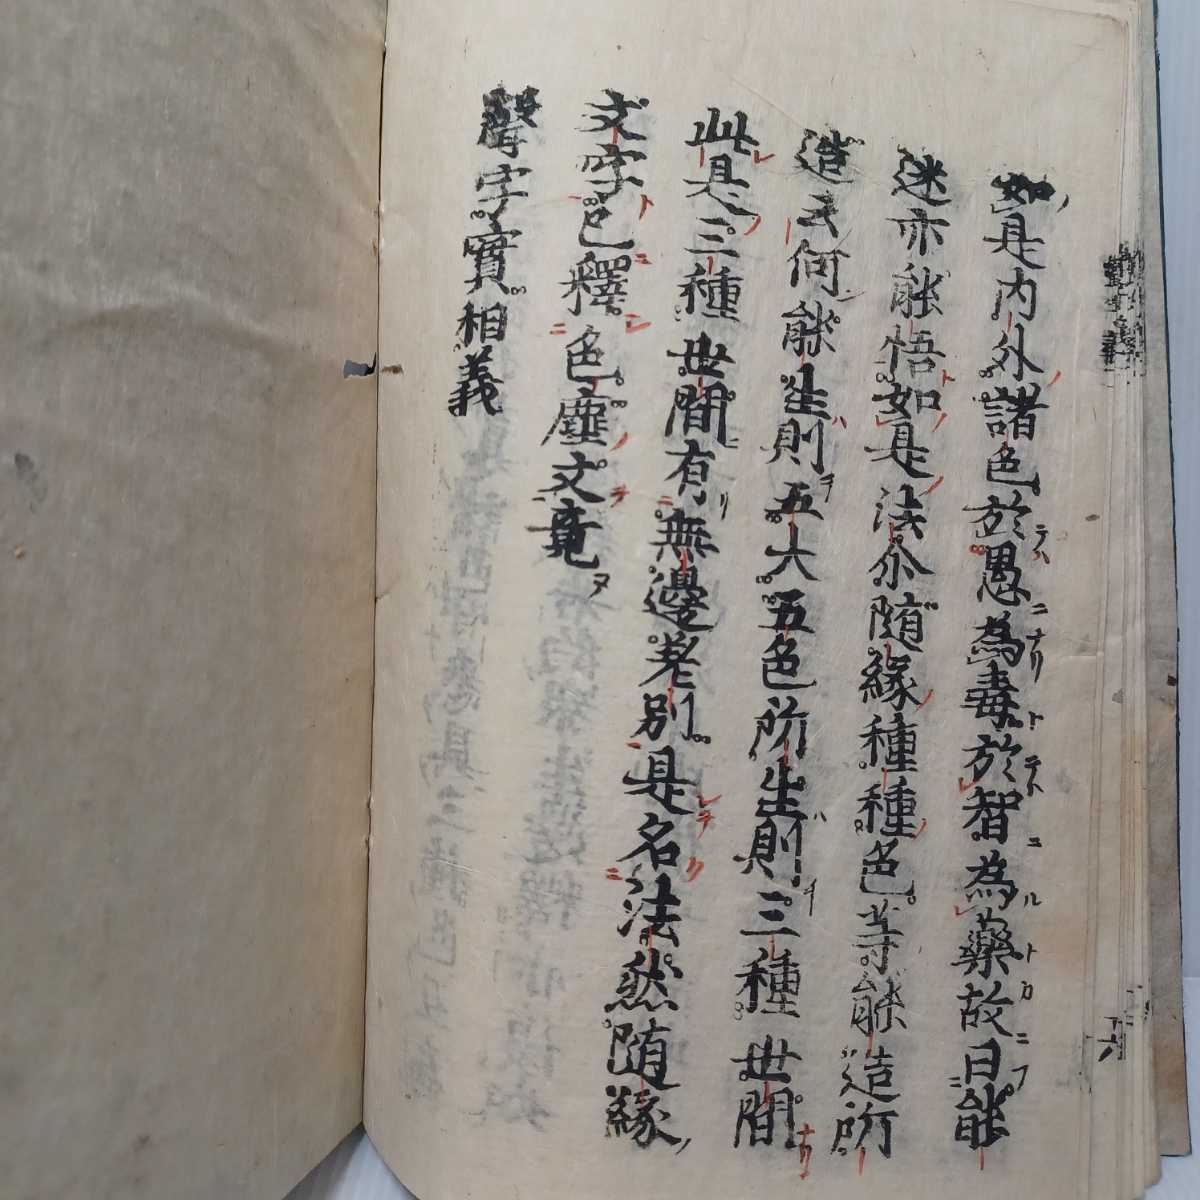 如是内外諸色於愚為毒於智為藥故曰能
迷亦能悟如是法尒随緣種種色等能造所
造云何能生則五大五色所生則三種世間
此是三種世間有無邊差別是名法然随緣
文字已釋色塵文竟
聲字實相義